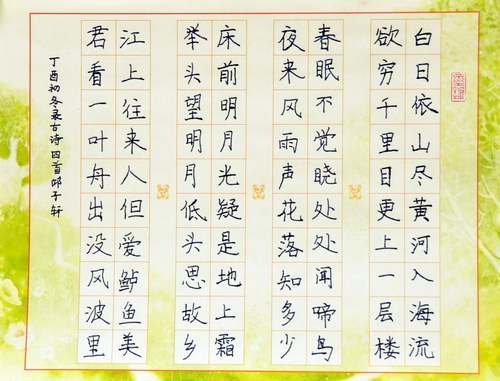 白日依山尽黄河入海流
欲穷千里目更上一层楼
春眠不觉晓处处闻啼鸟
夜来风雨声花落知多少
床前明月光疑是地上霜
举头望明月低头思故乡
江上往来人但爱鲈鱼美
君看一叶舟出没风波里
丁酉初冬录古诗四首邱子轩